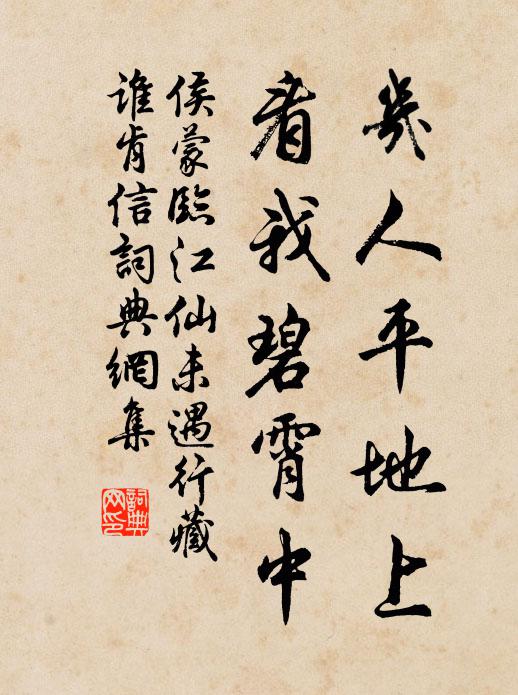 幾人平地上
看我碧霄中
侯蒙臨江仙未遇行藏
誰肯信詞典網集
詞典網印